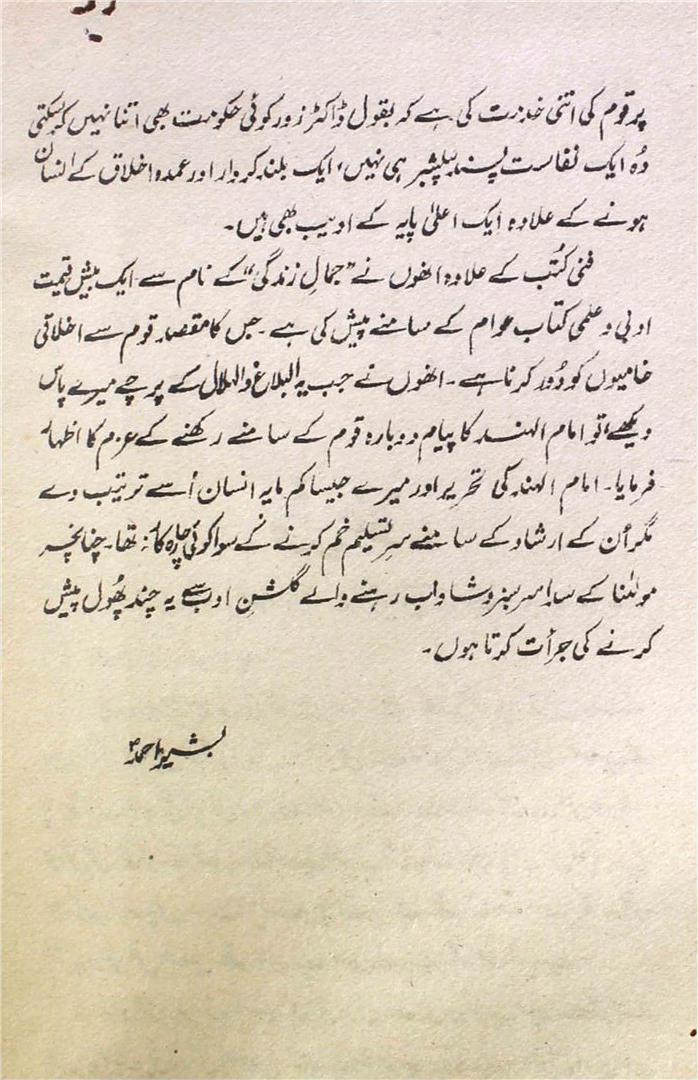 پر قوم کی اتنی خدمت کی ہے کہ بقول ڈاکٹر زور کوئی حکومت بھی اتنا نہیں کر سکتی
وُہ ایک نفاست پسند پبلیشر ہی نہیں، ایک بلند کردار اور عمدہ اخلاق کے انسان
ہونے کے علاوہ ایک اعلیٰ پایہ کے ادیب بھی ہیں۔
فنی کُتب کے علاوہ انھوں نے "جمالِ زندگی" کے نام سے ایک بیش قیمت
ادبی و علمی کتاب عوام کے سامنے پیش کی ہے۔ جس کا مقصد قوم سے اخلاقی
خامیوں کو دُور کرنا ہے۔ انھوں نے جب یہ البلاغ والہلال کے پرچے میرے پاس
دیکھے تو امام الہند کا پیام دوبارہ قوم کے سامنے رکھنے کے عزم کا اظہار
فرمایا۔ امام الہند کی تحریر اور میرے جیسا کم مایہ انسان اُسے ترتیب دے
مگر اُن کے ارشاد کے سامنے سرِ تسلیم خم کرنے کے سوا کوئی چارہ کار نہ تھا۔ چنانچہ
مولٰنا کے سدا سرسبز و شاداب رہنے والے گلشنِ ادب سے یہ چند پھُول پیش
کرنے کی جرأت کرتا ہوں۔
بشیر احمد